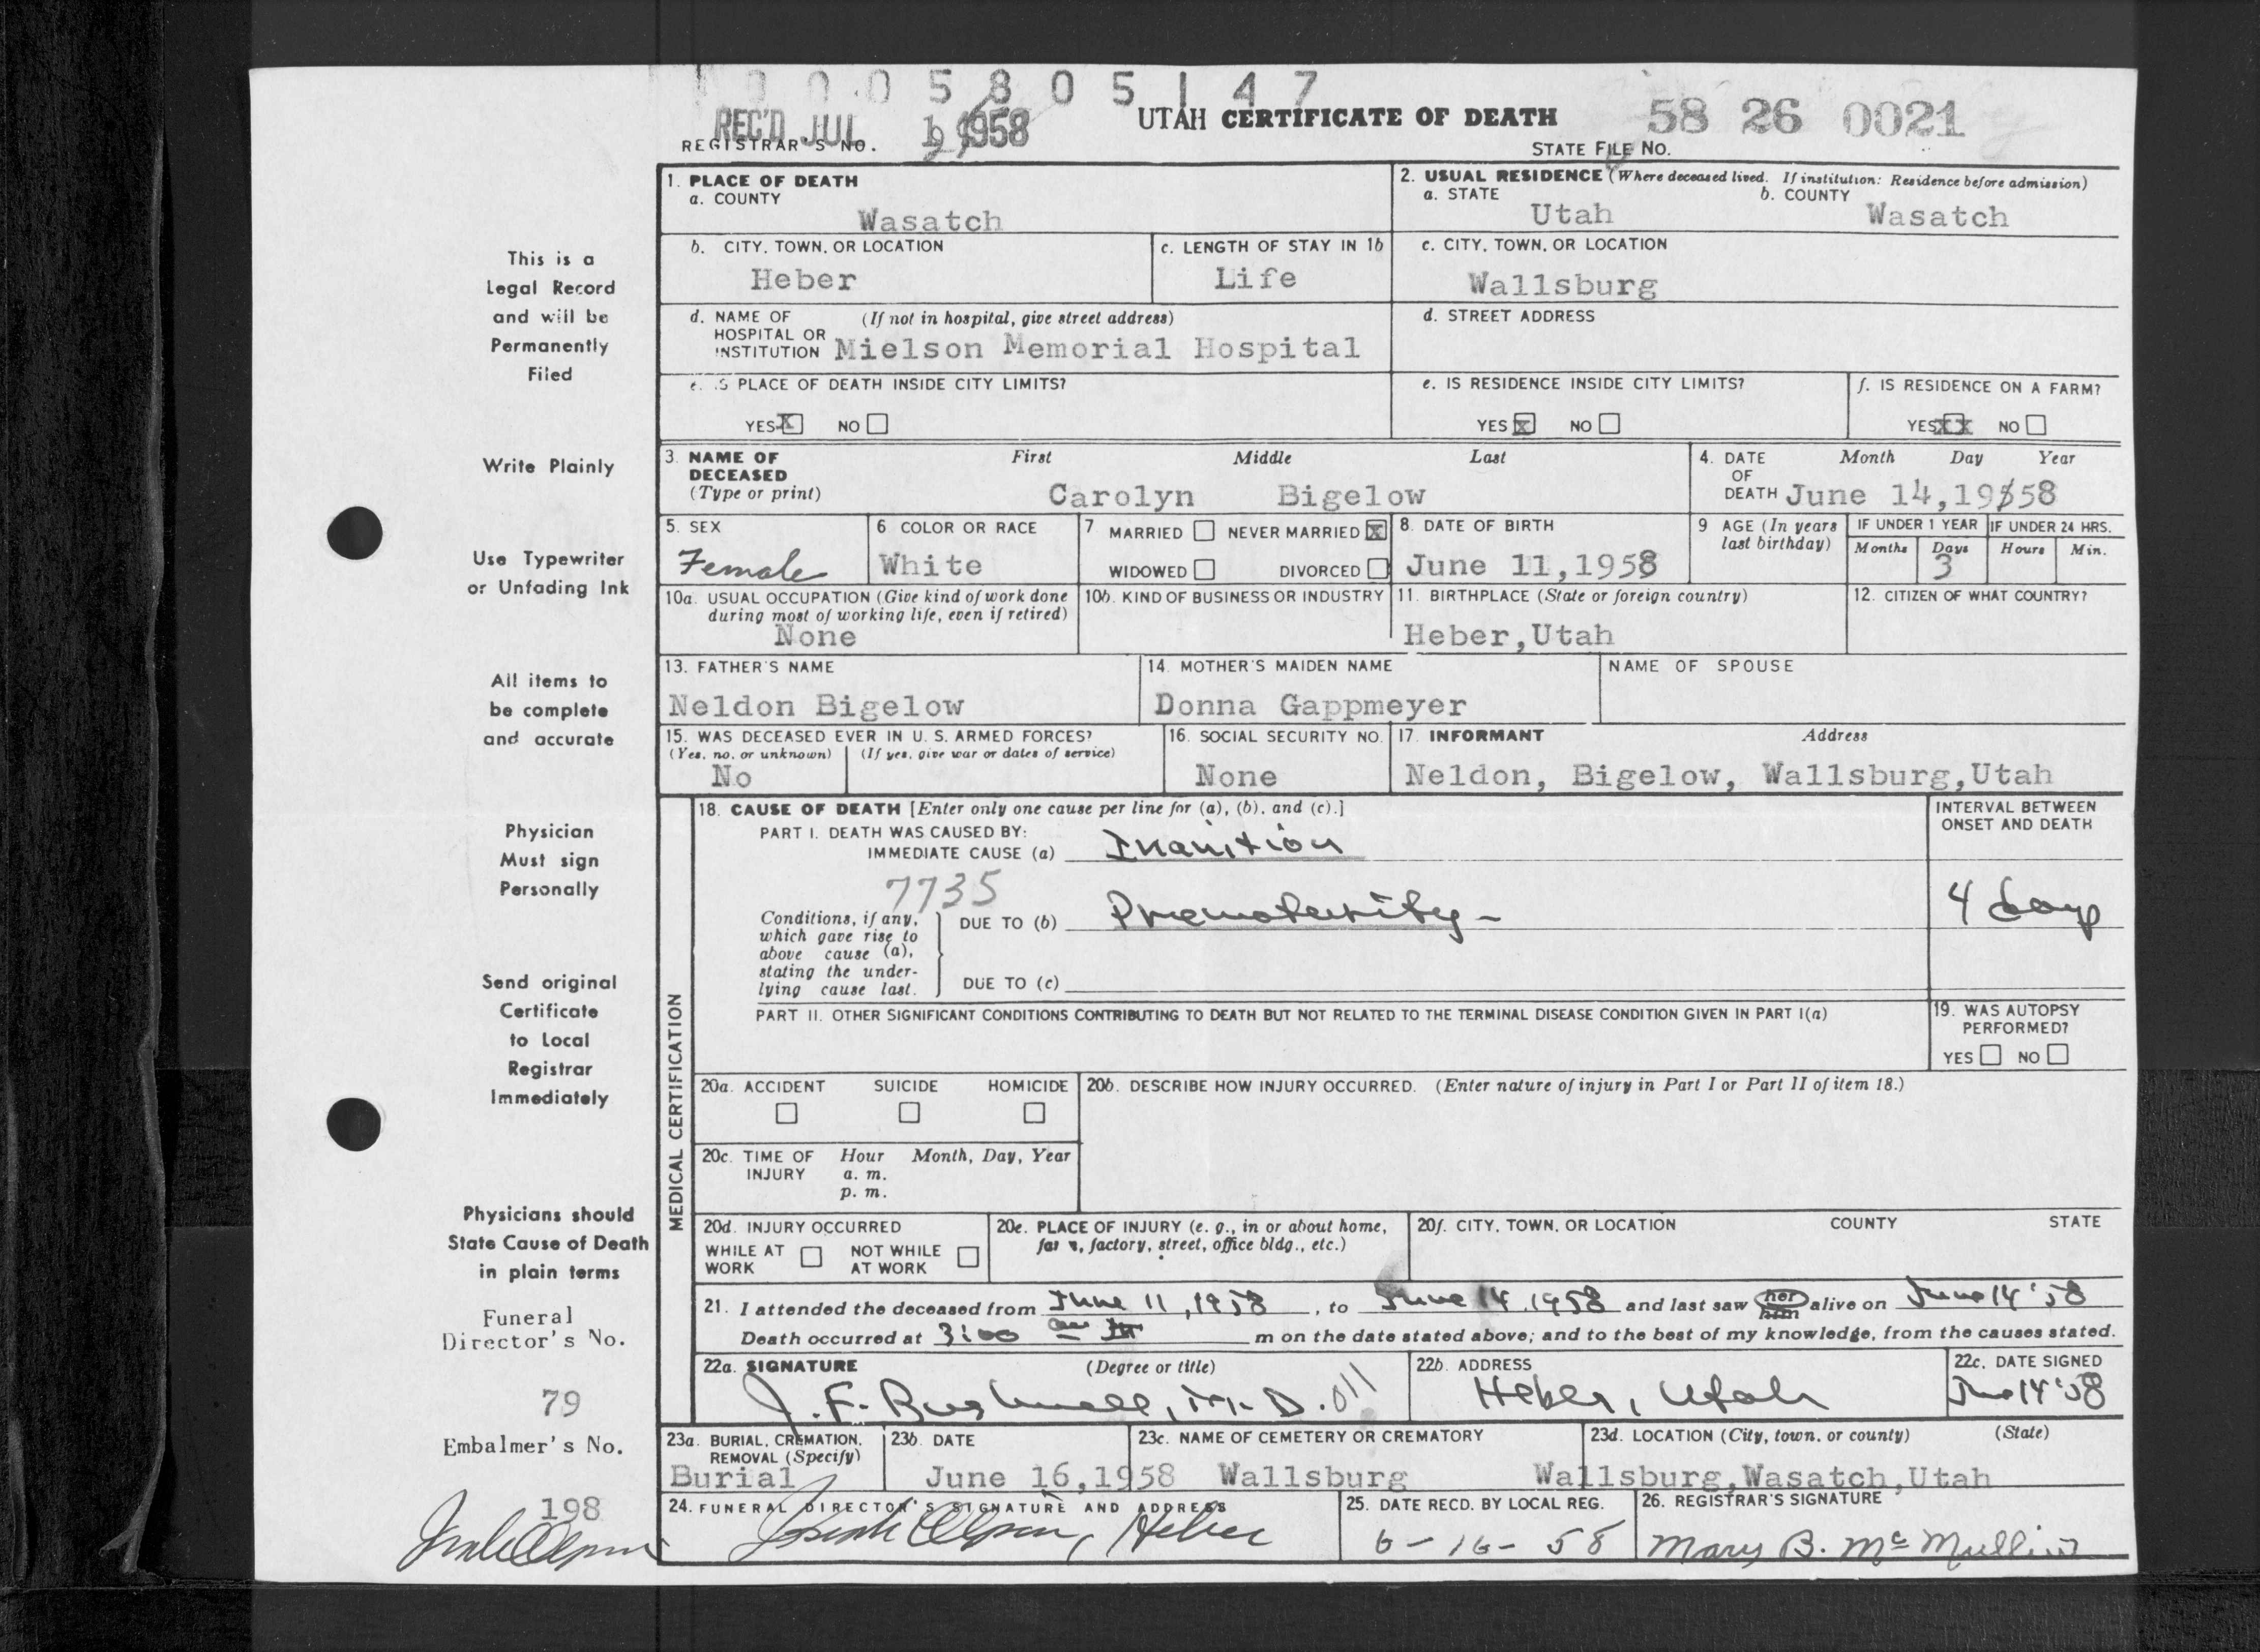 0 0 0 5 8 0 5 1 4 7
REC'D JUL 1958
REGISTRAR'S NO.
UTAH CERTIFICATE OF DEATH
58 26 0021
STATE FILE NO.
1. PLACE OF DEATH
a. COUNTY
Wasatch
2. USUAL RESIDENCE (Where deceased lived. If institution: Residence before admission)
a. STATE b. COUNTY
Utah Wasatch
b. CITY, TOWN, OR LOCATION
Heber
c. LENGTH OF STAY IN 1b
Life
c. CITY, TOWN, OR LOCATION
Wallsburg
d. NAME OF (If not in hospital, give street address)
HOSPITAL OR
INSTITUTION Mielson Memorial Hospital
d. STREET ADDRESS
e. IS PLACE OF DEATH INSIDE CITY LIMITS?
YES X NO
e. IS RESIDENCE INSIDE CITY LIMITS?
YES X NO
f. IS RESIDENCE ON A FARM?
YES XX NO
3. NAME OF DECEASED
(Type or print)
First Middle Last
Carolyn Bigelow
4. DATE OF DEATH
Month Day Year
June 14,1958
5. SEX
Female
6 COLOR OR RACE
White
7 MARRIED NEVER MARRIED X
WIDOWED DIVORCED
8. DATE OF BIRTH
June 11,1958
9 AGE (In years last birthday)
IF UNDER 1 YEAR IF UNDER 24 HRS.
Months Days Hours Min.
3
10a. USUAL OCCUPATION (Give kind of work done
during most of working life, even if retired)
None
10b. KIND OF BUSINESS OR INDUSTRY
11. BIRTHPLACE (State or foreign country)
Heber,Utah
12. CITIZEN OF WHAT COUNTRY?
13. FATHER'S NAME
Neldon Bigelow
14. MOTHER'S MAIDEN NAME
Donna Gappmeyer
NAME OF SPOUSE
15. WAS DECEASED EVER IN U. S. ARMED FORCES?
(Yes, no, or unknown) (If yes, give war or dates of service)
No
16. SOCIAL SECURITY NO.
None
17. INFORMANT Address
Neldon, Bigelow, Wallsburg,Utah
MEDICAL CERTIFICATION
18. CAUSE OF DEATH [Enter only one cause per line for (a), (b), and (c).]
INTERVAL BETWEEN
ONSET AND DEATH
PART I. DEATH WAS CAUSED BY:
IMMEDIATE CAUSE (a) Inanition
7735
Conditions, if any,
which gave rise to
above cause (a),
stating the under-
lying cause last.
DUE TO (b) Prematurity - 4 days
DUE TO (c)
PART II. OTHER SIGNIFICANT CONDITIONS CONTRIBUTING TO DEATH BUT NOT RELATED TO THE TERMINAL DISEASE CONDITION GIVEN IN PART I(a)
19. WAS AUTOPSY
PERFORMED?
YES NO
20a. ACCIDENT SUICIDE HOMICIDE
20b. DESCRIBE HOW INJURY OCCURRED. (Enter nature of injury in Part I or Part II of item 18.)
20c. TIME OF INJURY Hour Month, Day, Year
a. m.
p. m.
20d. INJURY OCCURRED
WHILE AT WORK NOT WHILE AT WORK
20e. PLACE OF INJURY (e. g., in or about home,
farm, factory, street, office bldg., etc.)
20f. CITY, TOWN, OR LOCATION COUNTY STATE
21. I attended the deceased from June 11, 1958, to June 14, 1958 and last saw her him alive on June 14 '58
Death occurred at 3:00 am m on the date stated above; and to the best of my knowledge, from the causes stated.
22a. SIGNATURE (Degree or title)
J. F. Bushnell, M. D.
22b. ADDRESS
Heber, Utah
22c. DATE SIGNED
June 14 '58
23a. BURIAL, CREMATION,
REMOVAL (Specify)
Burial
23b. DATE
June 16,1958
23c. NAME OF CEMETERY OR CREMATORY
Wallsburg
23d. LOCATION (City, town, or county) (State)
Wallsburg,Wasatch,Utah
24. FUNERAL DIRECTOR'S SIGNATURE AND ADDRESS
Olpin, Heber
25. DATE RECD. BY LOCAL REG.
6-16-58
26. REGISTRAR'S SIGNATURE
Mary B. McMullin
This is a
Legal Record
and will be
Permanently
Filed
Write Plainly
Use Typewriter
or Unfading Ink
All items to
be complete
and accurate
Physician
Must sign
Personally
Send original
Certificate
to Local
Registrar
Immediately
Physicians should
State Cause of Death
in plain terms
Funeral
Director's No.
79
Embalmer's No.
198